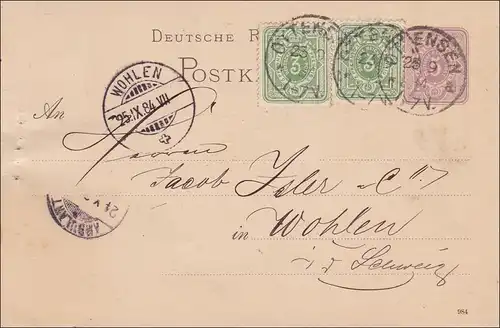 DEUTSCHE R
POSTK
OTTENSEN
WOHLEN
25.IX.84.VII
An
Herrn
Jacob Isler & Cie
in Wohlen
i/d Schweiz
AMBULANT
3
3
984